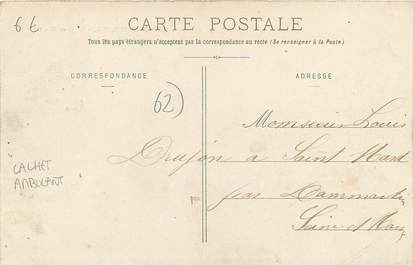 6€
CARTE POSTALE
Tous les pays étrangers n'acceptent pas la correspondance au recto (Se renseigner à la Poste)
CORRESPONDANCE
ADRESSE
62)
Monsieur Louis
Drujon a Saint Mard
par Dammartin
Seine et Marne
CACHET
AMBULANT